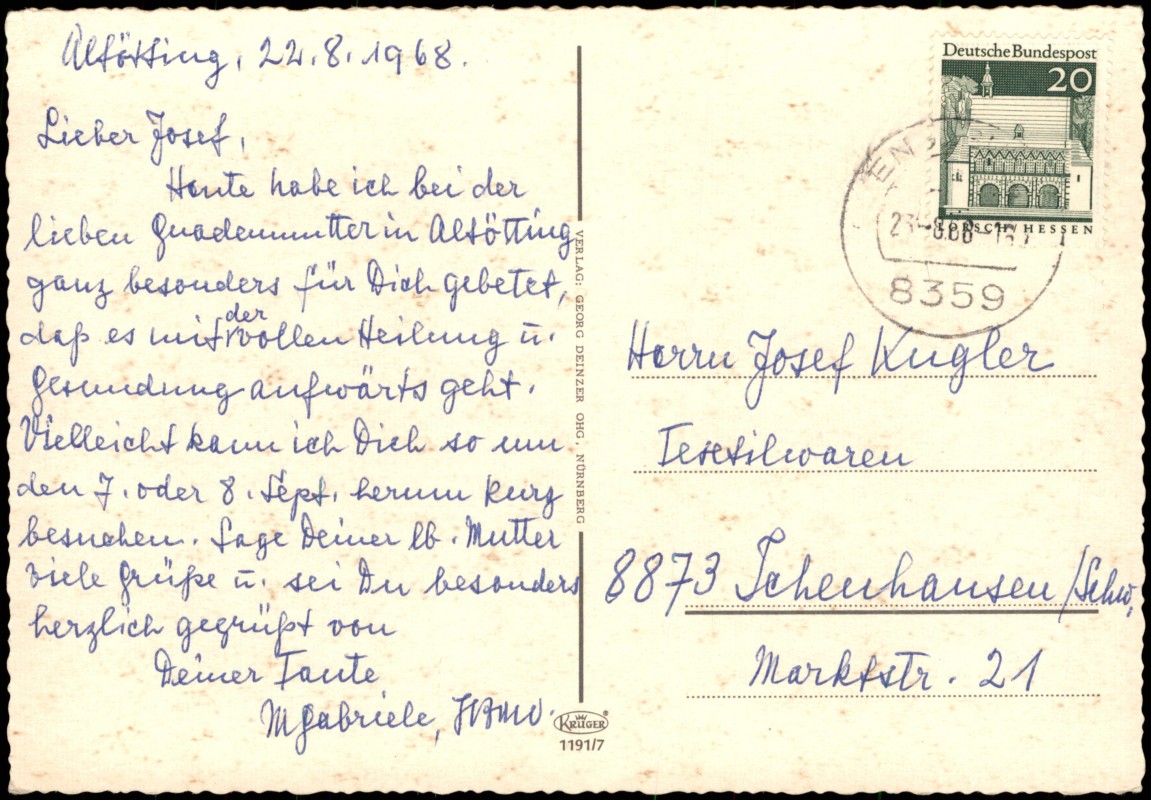 Altötting, 22.8.1968.
Lieber Josef,
Heute habe ich bei der
lieben Gnadenmutter in Altötting
ganz besonders für Dich gebetet,
daß es mit der vollen Heilung u.
Gesundung aufwärts geht.
Vielleicht kann ich Dich so um
den 7. oder 8. Sept. herum kurz
besuchen. Sage Deiner lb. Mutter
viele Grüße u. sei Du besonders
herzlich gegrüßt von
Deiner Tante
M Gabriele,
VERLAG: GEORG DEINZER OHG, NÜRNBERG
KRÜGER®
1191/7
Deutsche Bundespost
20
LORSCH/HESSEN
8359
Herrn Josef Kugler
Textilwaren
8873 Ichenhausen/Schw,
Marktstr. 21